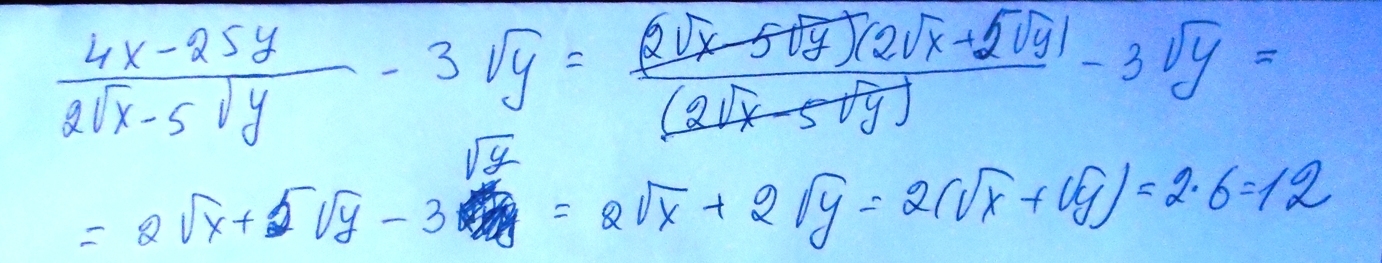 (4x - 25y)/(2√x - 5√y) - 3√y = ((2√x - 5√y)(2√x + 5√y))/((2√x - 5√y)) - 3√y =
= 2√x + 5√y - 3√y = 2√x + 2√y = 2(√x + √y) = 2·6 = 12